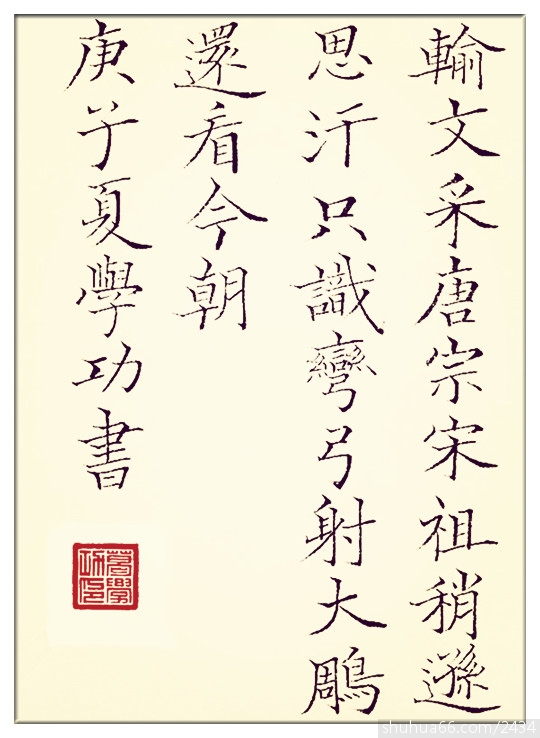 輸文采唐宗宋祖稍遜
思汗只識彎弓射大鵰
還看今朝
庚子夏學功書
葛學功印
shuhua66.com/2434